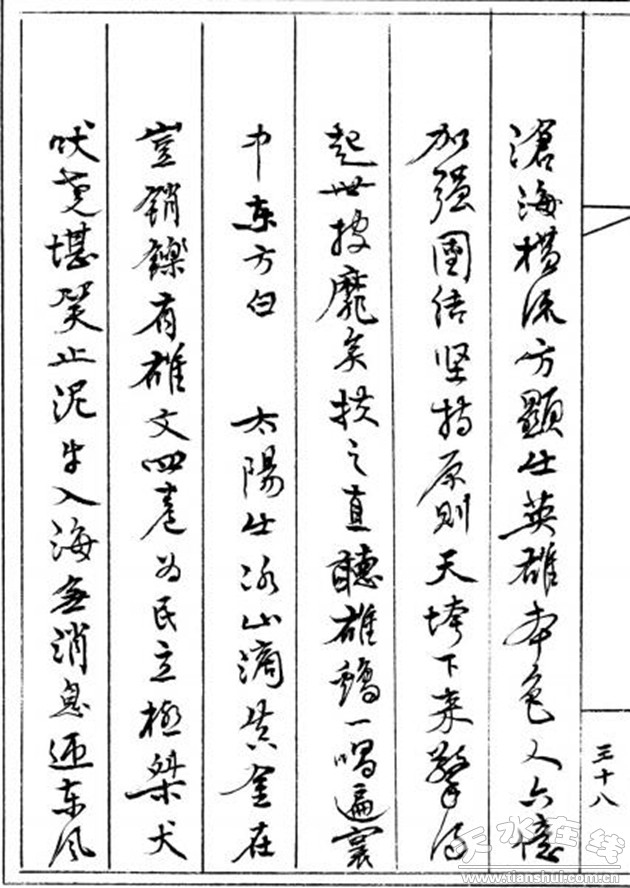 滄海横流方顯出英雄本色人六億
加强團结坚持原則天垮下来擎得
起世披靡矣扶之直聽雄鷄一唱遍寰
中东方白　太陽出冰山滴真金在
豈銷鑠有雄文四卷为民立極桀犬
吠尧堪笑止泥牛入海無消息迎东风
三十八
天水在线
www.tianshui.com.cn